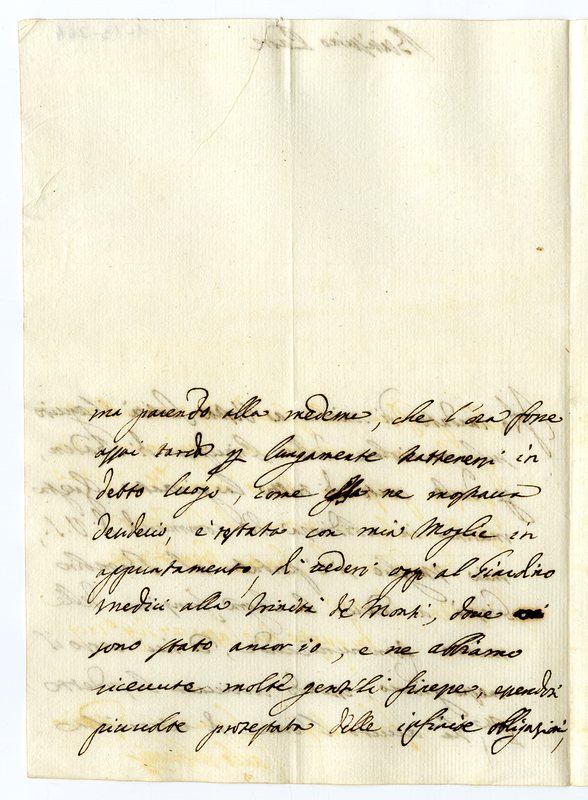 ma parendo alla medema, che l'ora fosse
assai tarda p lungamente trattenersi in
detto luogo, come ne mostraua
desiderio, è restata con mia Moglie in
appuntamento, di uedersi oggi al Giardino
Medici alla Trinità de Monti, doue
sono stato ancor io, e ne abbiamo
riceuute molte gentili finezze, essendosi
piu uolte protestata delle infinite obligazioni,